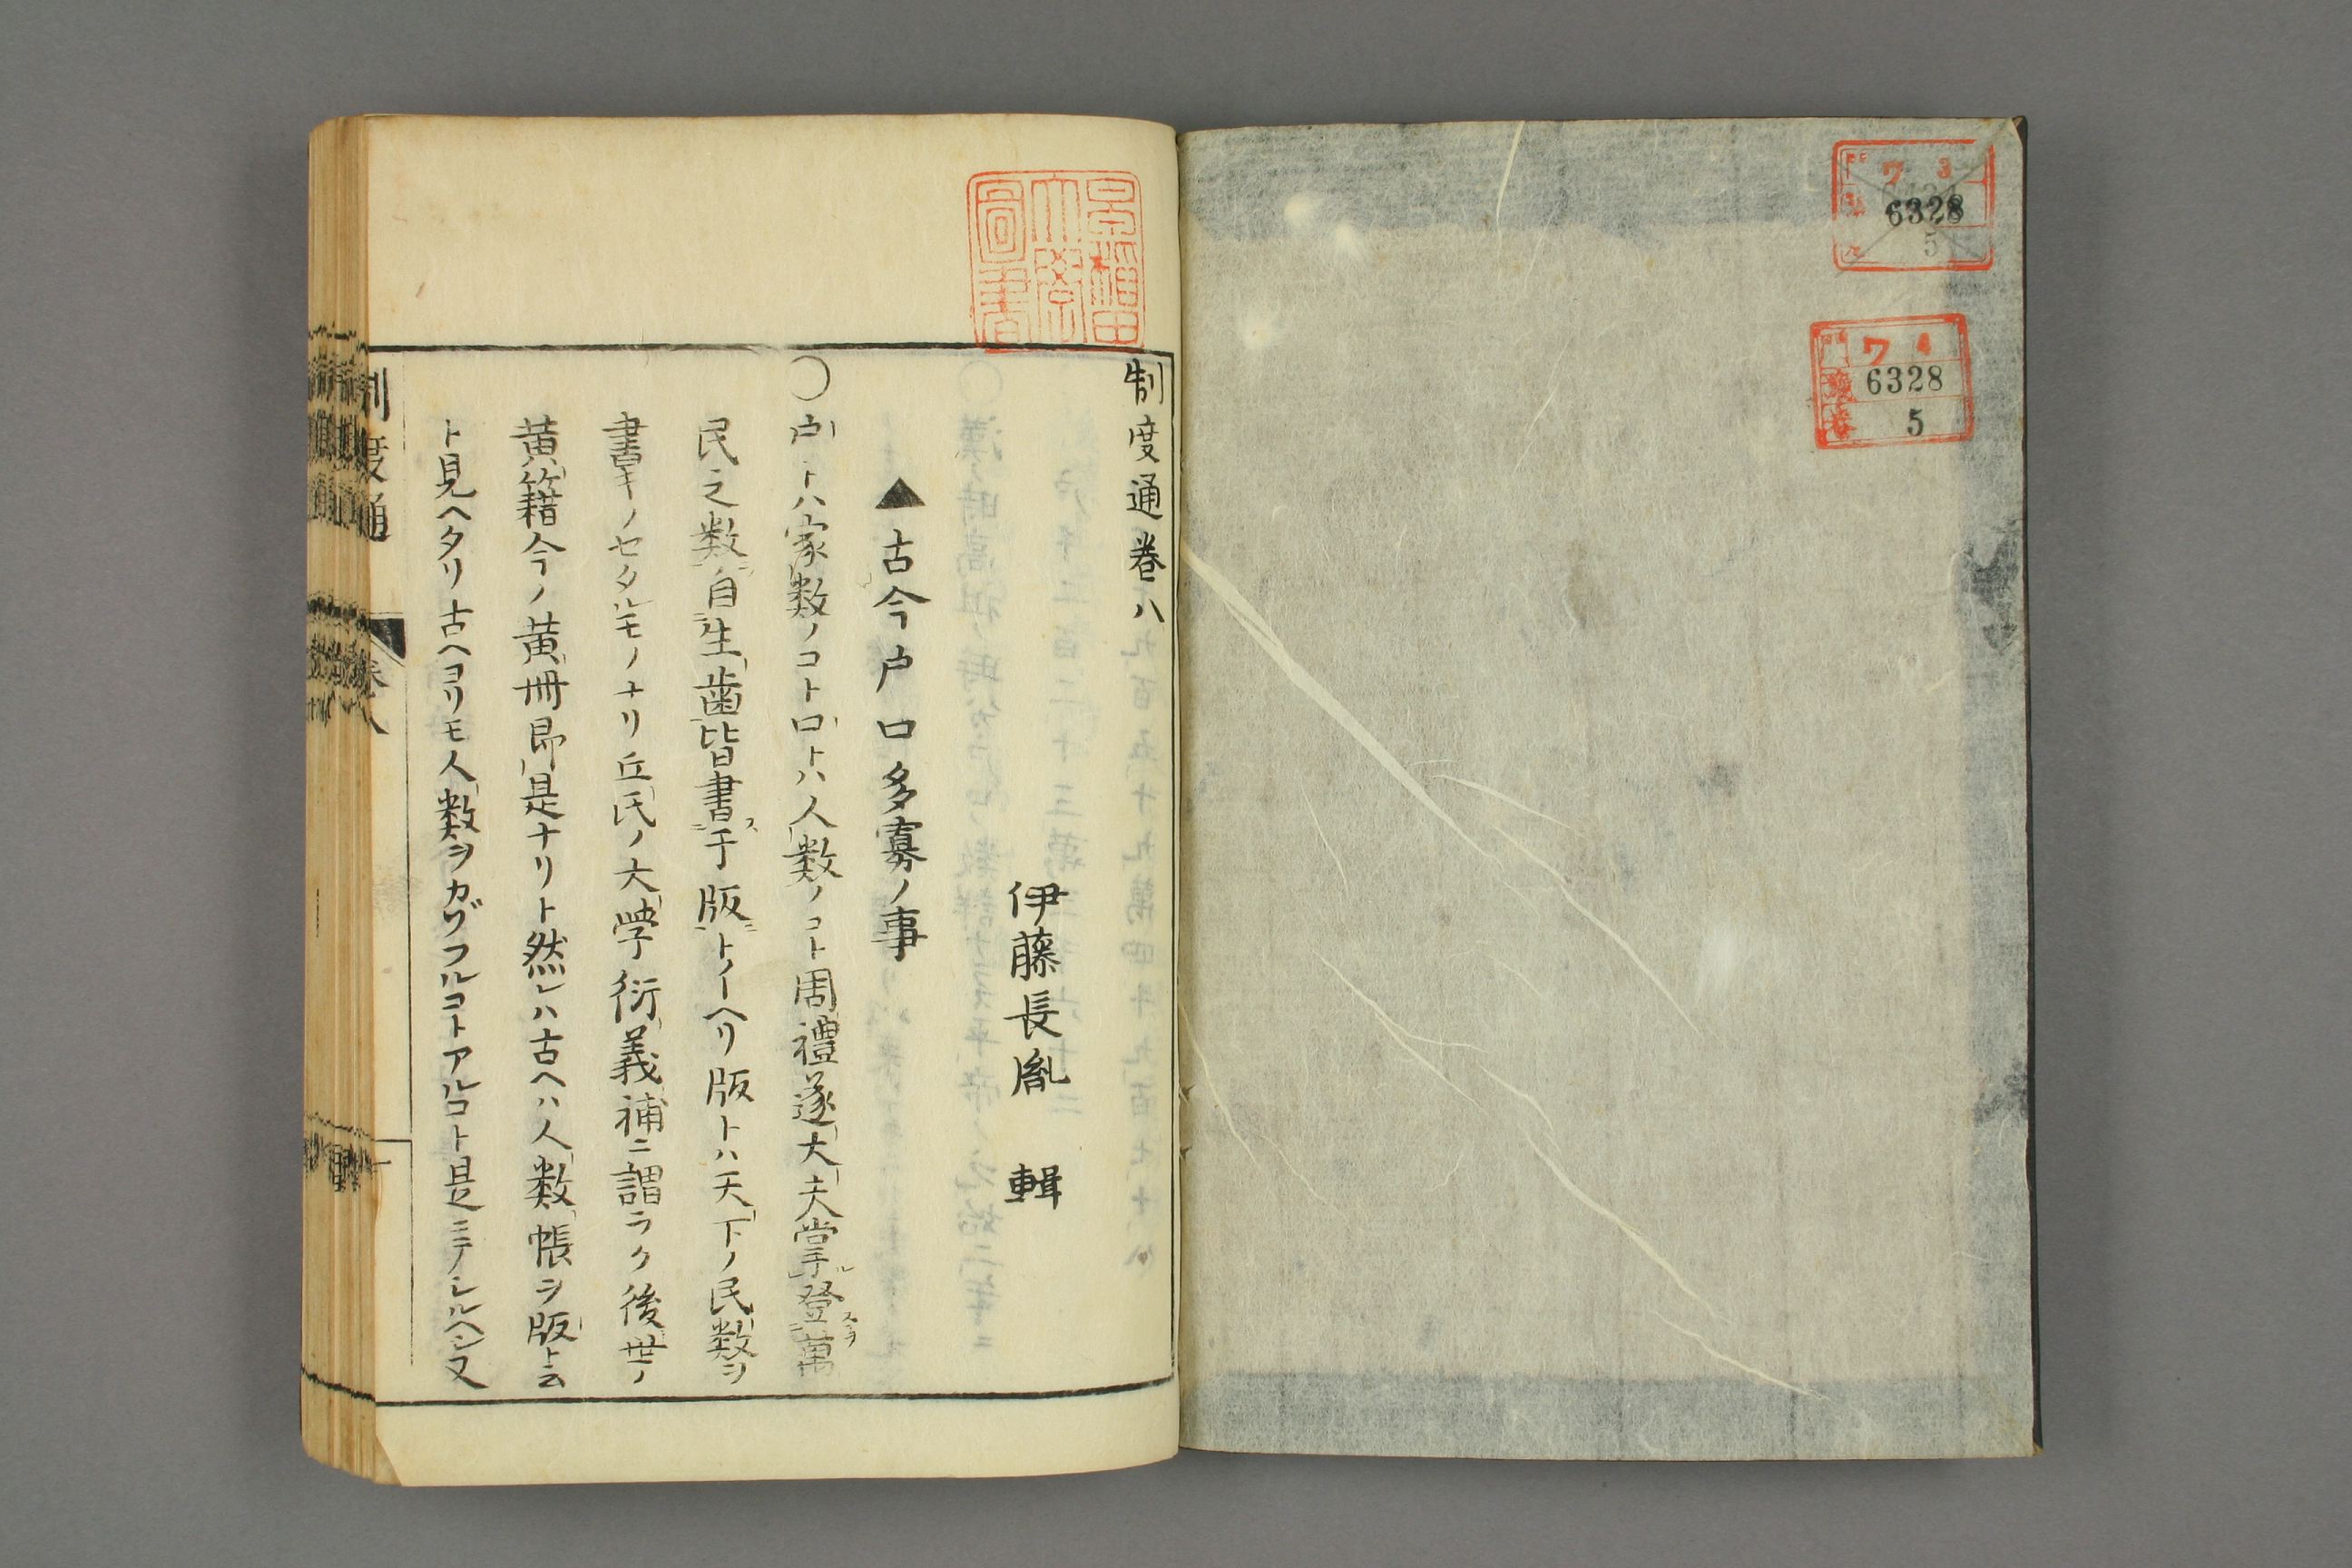 門 ワ 3
號 6328
卷 5
門 ワ 4
號 6328
卷 5
早稲田
大學
圖書
制度通巻八
伊藤長胤 輯
▲古今户口多寡ノ事
〇户トハ家数ノコト口トハ人数ノコト周禮遂大夫掌ル登スヿヲ萬
民之数自生歯皆書ス于版トイヘリ版トハ天下ノ民数ヲ
書キノセタルモノナリ丘氏ノ大学衍義補ニ謂ラク後世ノ
黄籍今ノ黄冊即是ナリト然レハ古ヘハ人数帳ヲ版ト云
ト見ヘタリ古ヘヨリモ人数ヲカゾフルコトアルコト是ニテシルヘシ又
制度通 巻八 一